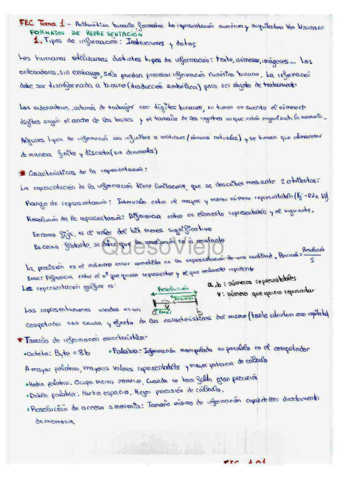 FEC Tema 1 - Aritmética binaria, formatos de representación numérica y arquitectura Von Neumann
FORMATOS DE REPRESENTACIÓN
1. Tipos de información: Instrucciones y datos
Los humanos utilizamos distintos tipos de información: texto, números, imágenes... Los
ordenadores, sin embargo, solo pueden procesar información numérica binaria. La información
debe ser transformada a binario (traducción simbólica) para ser objeto de tratamiento
Los ordenadores, además de trabajar con dígitos binarios, se tienen en cuenta el número de
dígitos según el ancho de los buses y el tamaño de los registros en que está organizada la memoria.
Algunos tipos de información son infinitos o continuos (números naturales) y se tienen que almacenar
de manera finita y discreta (sin decimales)
* Características de la representación:
La representación de la información tiene limitaciones, que se describen mediante 2 atributos:
Rango de representación: Intervalo entre el mayor y menor número representable
Resolución de la representación: Diferencia entre un elemento representable y el siguiente.
En coma fija, es el valor del bit menos significativo
En coma flotante, se dice que la resolución es
QuesoViejo
La precisión es el máximo error cometido en la representación de una cantidad, Precisión = Resolución / 2
Error: Diferencia entre el nº que quiero representar y el que realmente represento
Las representación gráfica es:
Resolución
a, b: números representables
v: número que quiero representar
Error
Las representaciones usadas en un
computador son causa y efecto de las características del mismo
* Tamaño de información característicos:
• Octeto: Byte = 8b • Palabra: Información manipulada en paralelo en el computador
A mayor palabra, mayores valores representables y mayor potencia de cálculo
• Media palabra: Ocupa menos memoria, Cuando no hace falta gran precisión
• Doble palabra: Mucho espacio, Mejor precisión de cálculo.
• Resolución de acceso a memoria: Tamaño mínimo de información capaz de leer directamente
de memoria
FEC 1.01